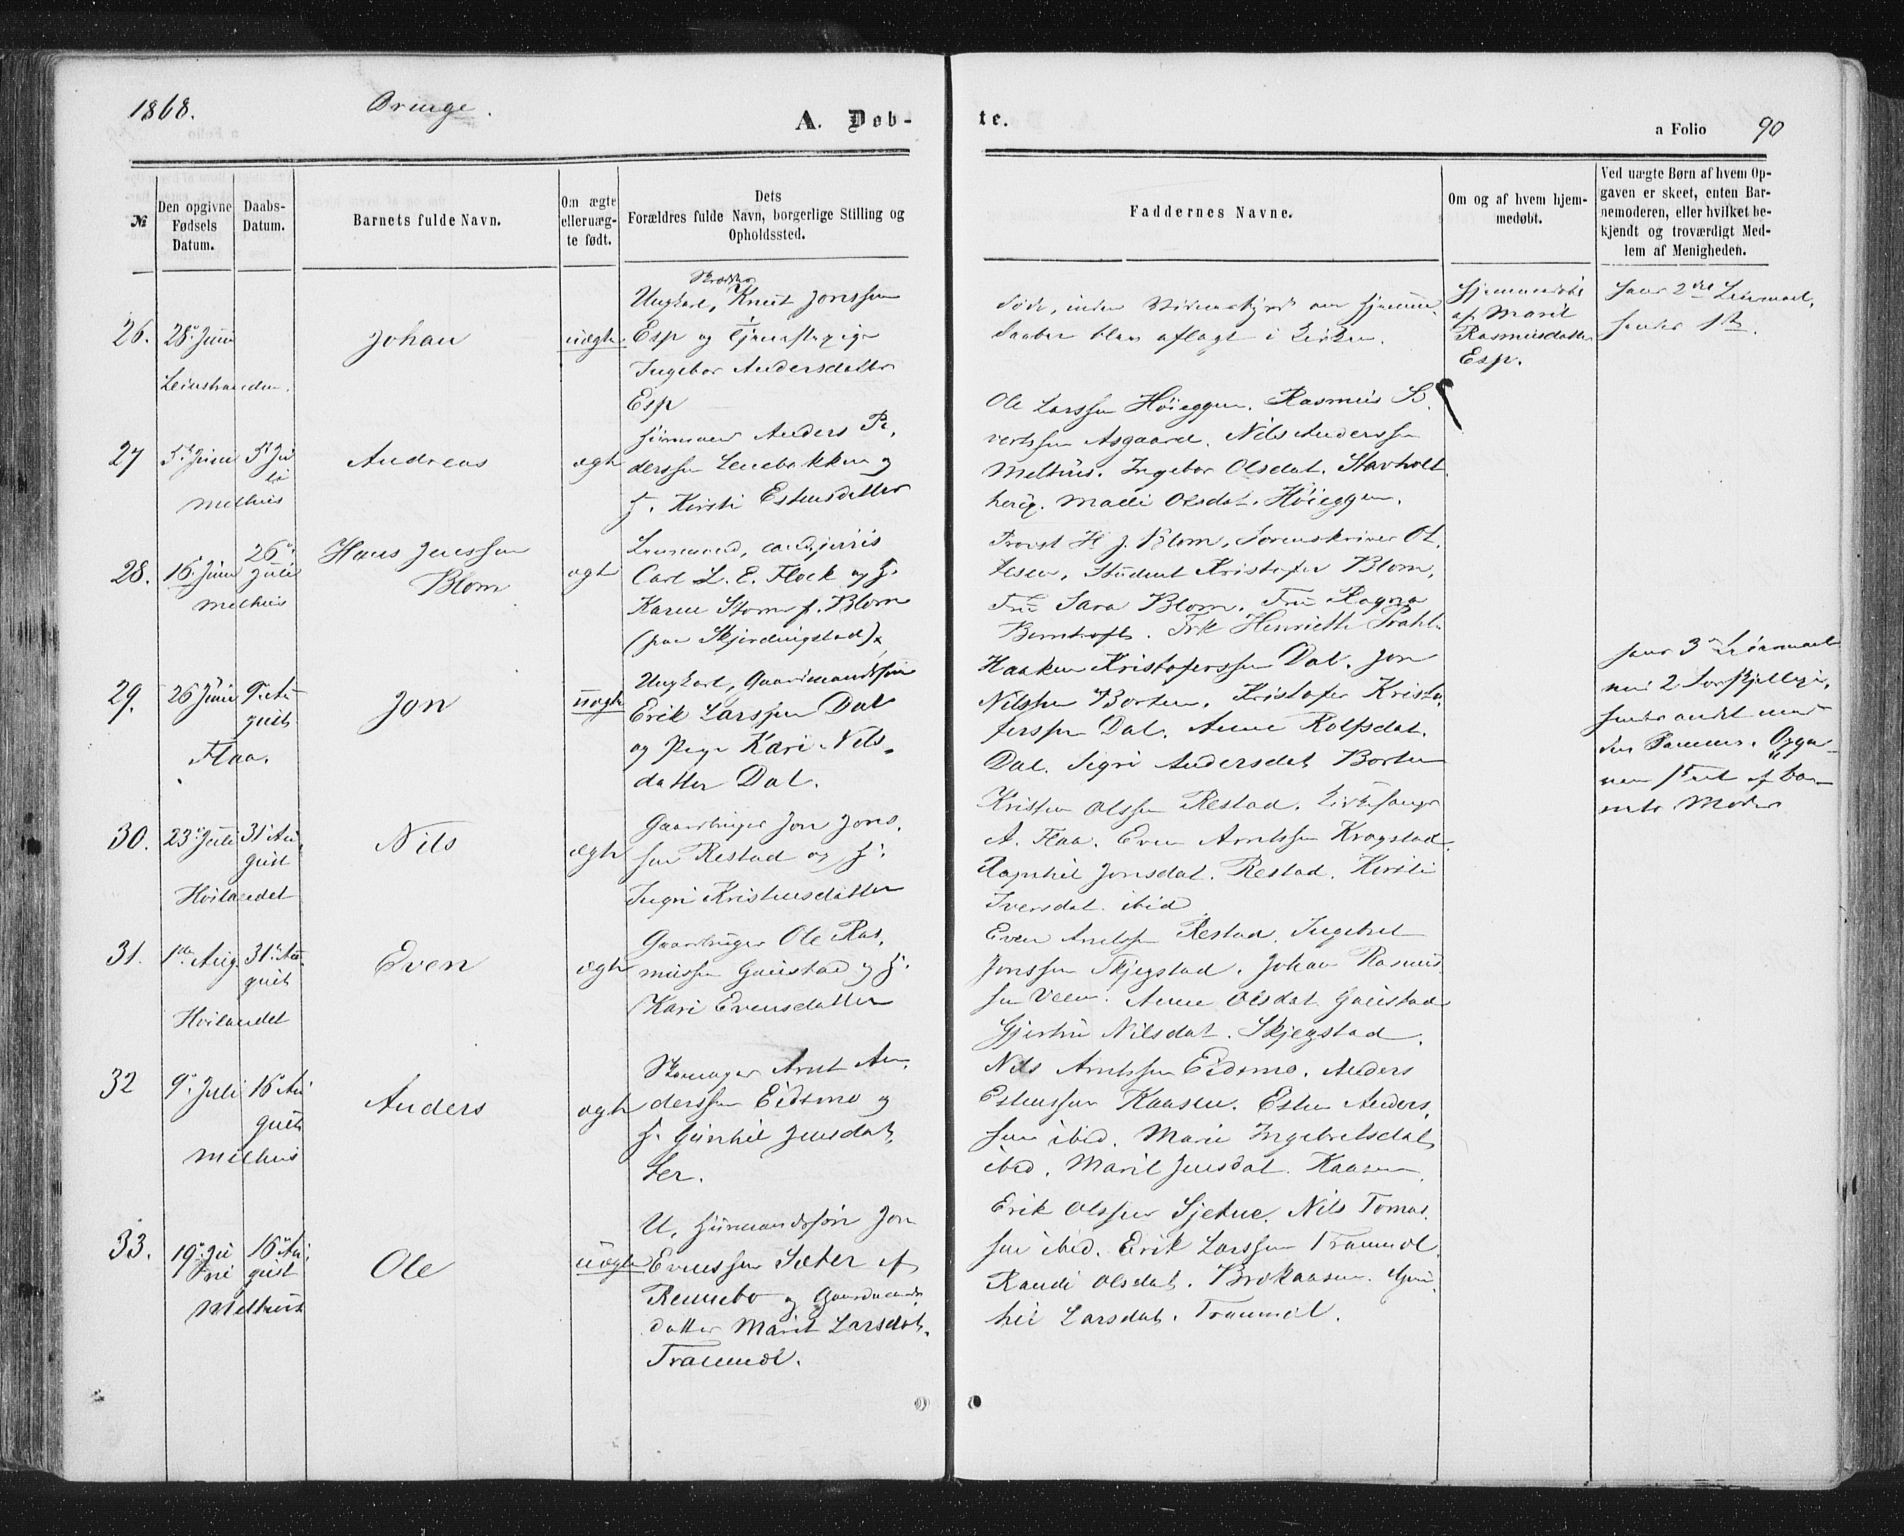 1868.
Drenge.
A. Døb-
te.
a Folio 90
№
Den opgivne Fødsels Datum.
Daabs-Datum.
Barnets fulde Navn.
Om ægte eller uæg-te født.
Dets Forældres fulde Navn, borgerlige Stilling og Opholdssted.
Faddernes Navne.
Om og af hvem hjem-medøbt.
Ved uægte Børn af hvem Op-gaven er skeet, enten Bar-nemoderen, eller hvilket be-kjendt og troværdigt Med-lem af Menigheden.
26. 28. Juni
Leinstranden.
Johan
uægte
Ungkarl, Knut Jonssen
Esp og Tjenestepige
Ingebor Andersdatter
Esp
Døde, inden Vidnesbyrd om Hjemme-
daaben blev aflagt i Kirken.
Hjemmedøbt
af Marit
Rasmusdatter
Esp.
Faur 2det Leiermaal,
hendes 1ste.
27 5te Juni 5te Ju
li
Melhus
Andreas
ægte
Huusmand Anders Pe
derssen Lenebakken og
H. Kirsti Estensdatter
Ole Larssen Høieggen. Rasmus Si
vertssen Asgaard. Nils Anderssen
Melhus. Ingebor Olsdat.
Olsdat. Høieggen.
28. 16. Juni 26.
Juli
Melhus
Hans Jenssen
Blom
ægte
Lensmand, cand. juris
Carl L. E. Flock og H.
Karen Storm f. Blom
(paa Skjerdingstad)
Provst H. J. Blom, Sorenskriver Ot
tesen, Student Kristofer Blom,
Fru Sara Blom. Fru Ragna
Frk Henriette
29. 26 Juni 9. Au
gust
Flaa.
Jon
uægte
Ungkarl, Gaardmandssøn
Erik Larssen Dal
og Pige Kari Nils
datter Dal.
Haaken Kristoferssen Dal. Jon
Nilssen Borten. Kristofer Kristo
ferssen Dal. Anne Rolfsdat.
Dal. Sigri Andersdat Borten
Faur 3die Leiermaal
med 2 forskjellige,
hendes andet med
den Samme. Opga-
ven skeet af Bar-
nets Moder
30. 23. Juli 31. Au
gust
Hvilandet
Nils
ægte
Gaardbruger Jon Jons
sen Restad og H.
Ingri Kristensdatter
Kristen Olssen Restad. Kirkesanger
A. Flaa. Even Arntssen Krogstad.
Ragnhil Jonsdat. Restad. Kirsti
Iversdat. ibid
31. 1ste Aug 31. Au
gust
Hvilandet
Even
ægte
Gaardbruger Ole Ras
mussen Gaustad og H.
Kari Evensdatter
Even Arntssen Restad. Ingebret
Jonssen Skjegstad. Johan Rasmus
sen Veen. Anne Olsdat Gaustad
Gjertru Nilsdat. Skjegstad.
32 9. Juli 16. Au
gust
Melhus
Anders
ægte
Skomager Arnt An
derssen Eidsmo og
H. Gunhil Jensdat
ter.
Nils Arntssen Eidsmo. Anders
Estenssen Kaasen. Esten Anders
sen ibid. Marie Ingebretsdat
ibid. Marit Jensdat. Kaasen.
33. 19. Ju
ni 16. Au
gust
Melhus
Ole
uægte
U. Huusmandssøn Jon
Evenssen Sæter af
Rennebo og Gaardmands
datter Marit Larsdat.
Traamdl.
Erik Olssen Sjetne. Nils Tomas
sen ibid. Erik Larssen
Randi Olsdat. Brekaasen. Gun
hil Larsdat.